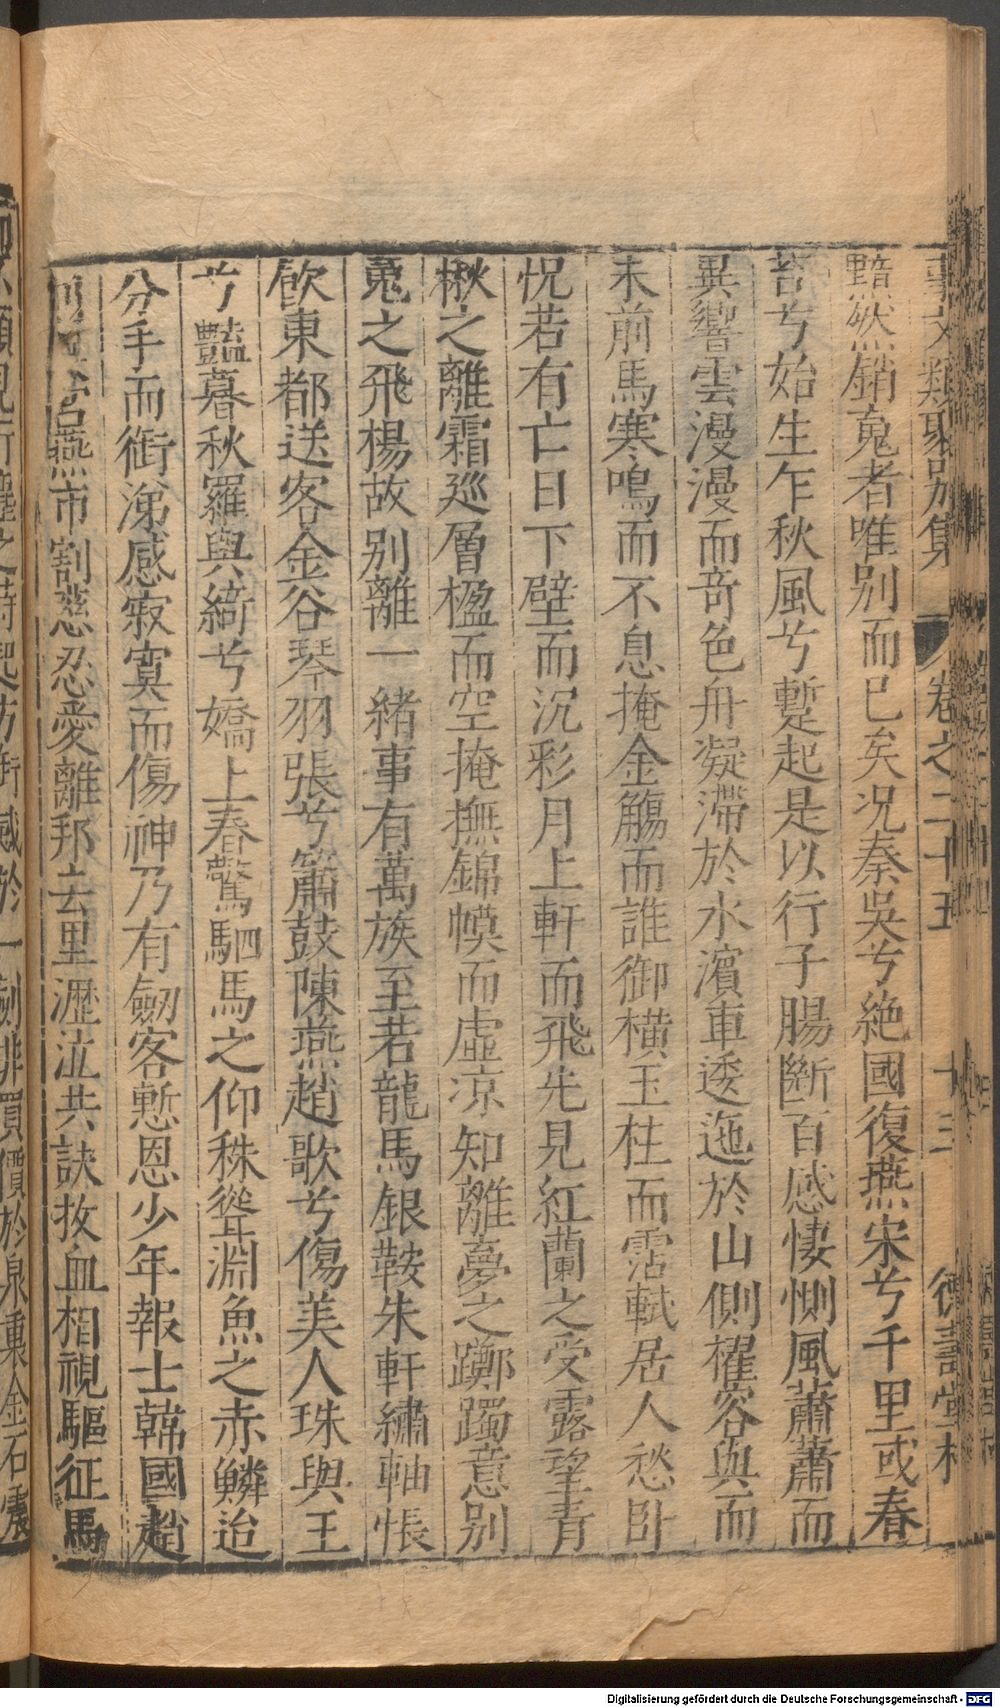 事文類聚別集 卷之二十五 十三 德壽堂梓
黯然銷䰟者唯别而已矣况秦吳兮絶國復燕宋兮千里或春
苔兮始生乍秋風兮蹔起是以行子腸斷百感悽惻風蕭蕭而
異響雲漫漫而竒色舟凝滯於水濵車逶迤於山側櫂容與而
未前馬寒鳴而不息掩金觴而誰御横玉柱而霑軾居人愁卧
怳若有亡日下壁而沉彩月上軒而飛光見紅蘭之受露望青
楸之離霜廵層楹而空掩撫錦幙而虛凉知離夢之躑躅意别
䰟之飛楊故别離一緒事有萬族至若龍馬銀鞍朱軒繡軸帳
飲東都送客金谷琴羽張兮簫鼓陳燕趙歌兮傷美人珠與玉
兮豔暮秋羅與綺兮嬌上春驚駟馬之仰秣聳淵魚之赤鱗迨
分手而銜涕感寂寞而傷神乃有劒客慙恩少年報士韓國趙
厠吳宫燕市割慈忍愛離邦去里瀝泣共訣抆血相視驅征馬
Digitalisierung gefördert durch die Deutsche Forschungsgemeinschaft - DFG